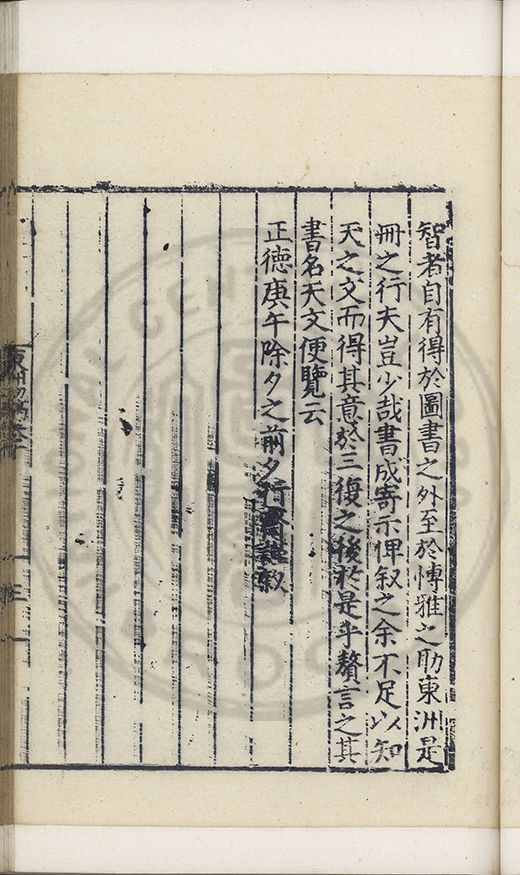 智者自有得於圖書之外至於博雅之助東洲是
冊之行夫豈少哉書成寄示俾叙之余不足以知
天之文而得其意於三復之後於是乎贅言之其
書名天文便覽云
正德庚午除夕之前夕行